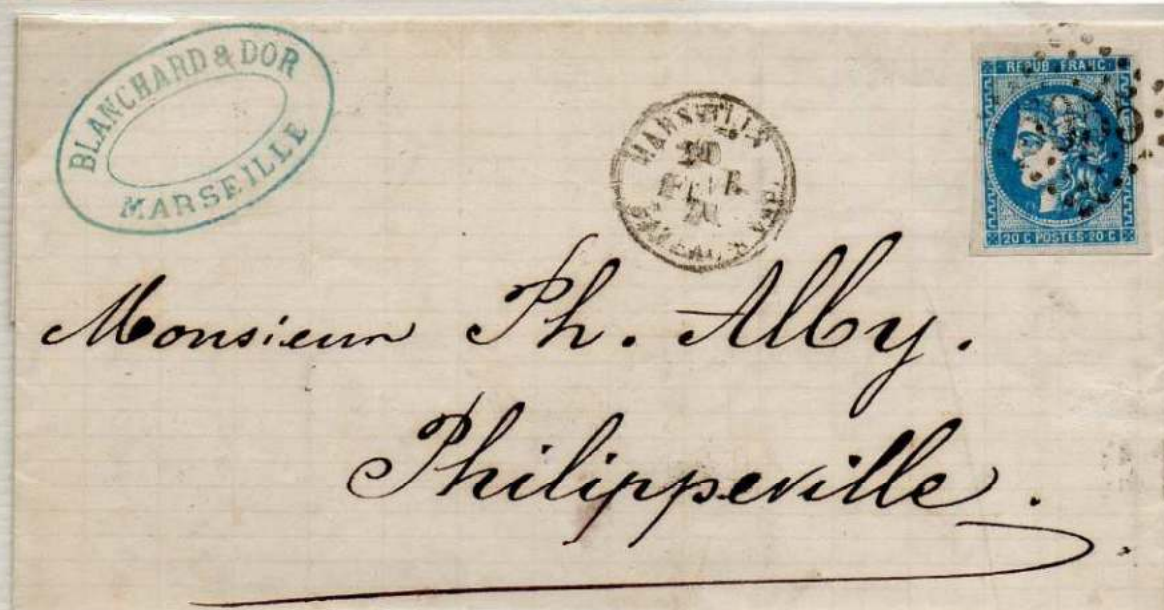 BLANCHARD & DOR
MARSEILLE
MARSEILLE
20
FEVR.
REPUB FRANC
20 C POSTES 20 C
Monsieur Ph. Alby.
Philippeville.